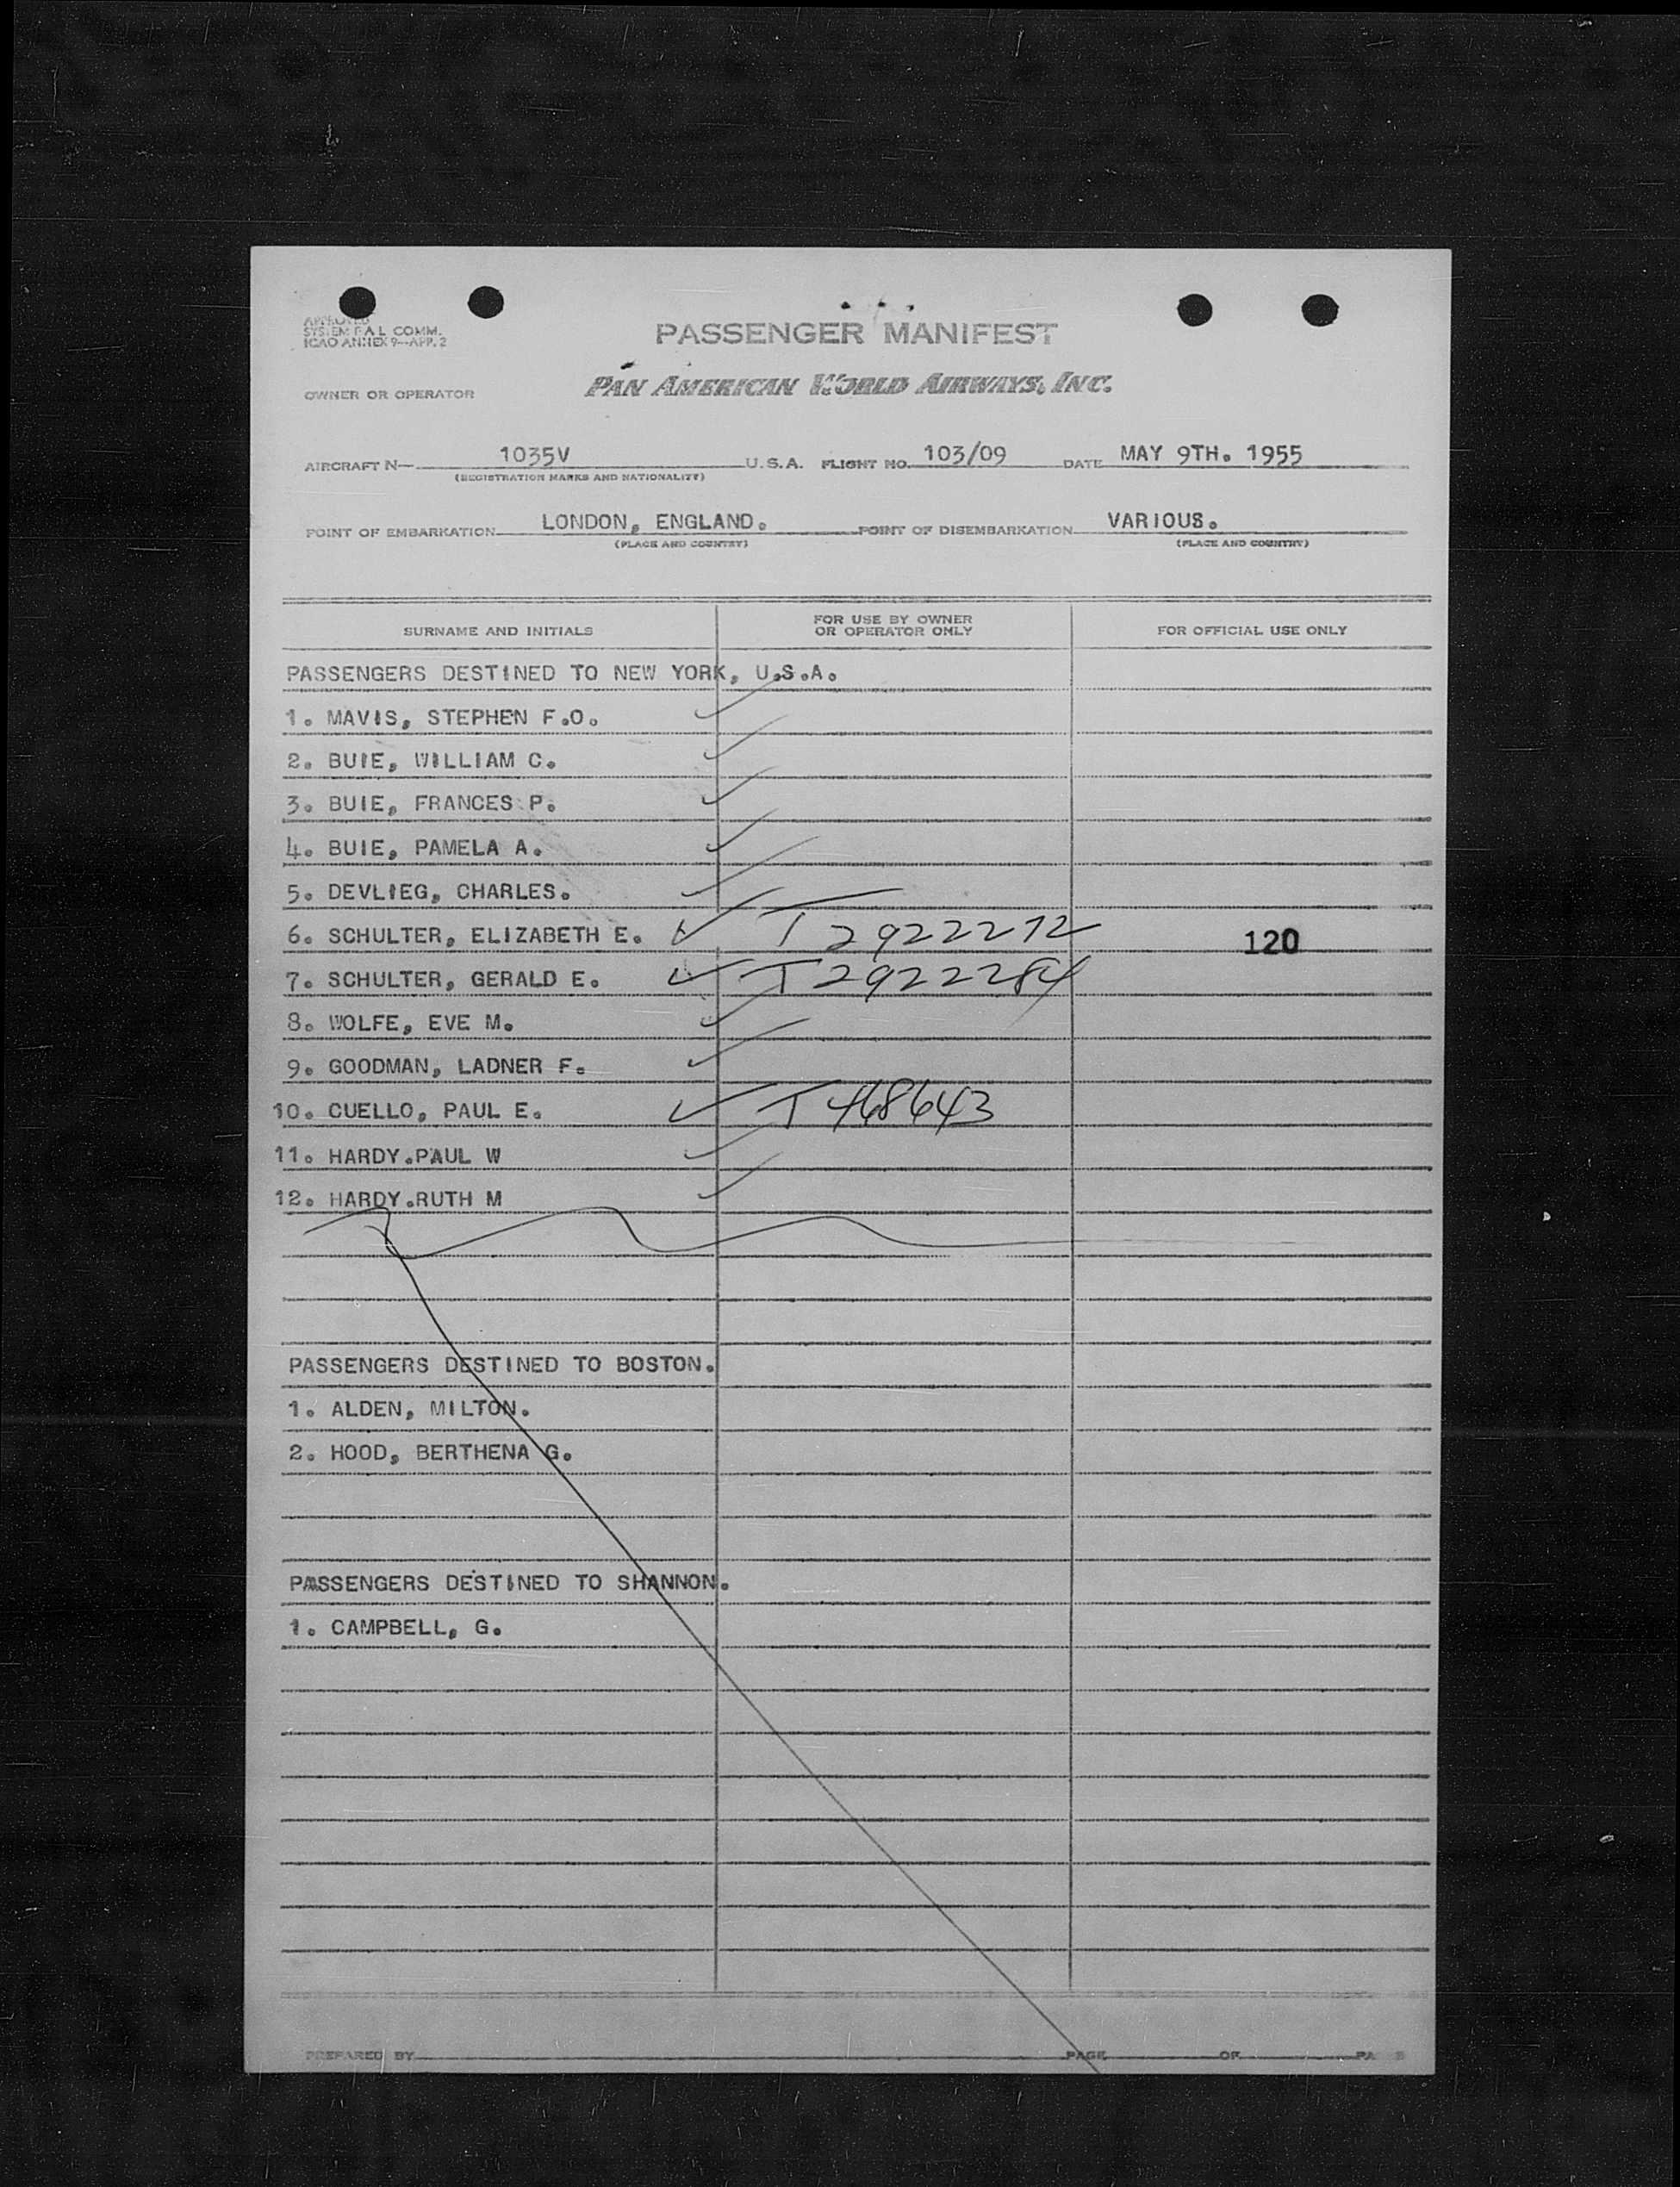 APPROVED
SYSTEM F.A.L. COMM.
ICAO ANNEX 9—APP. 2
PASSENGER MANIFEST
OWNER OR OPERATOR PAN AMERICAN WORLD AIRWAYS, INC.
AIRCRAFT N— 1035V U.S.A. FLIGHT NO. 103/09 DATE MAY 9TH. 1955
(REGISTRATION MARKS AND NATIONALITY)
POINT OF EMBARKATION LONDON, ENGLAND. POINT OF DISEMBARKATION VARIOUS.
(PLACE AND COUNTRY) (PLACE AND COUNTRY)
SURNAME AND INITIALS FOR USE BY OWNER OR OPERATOR ONLY FOR OFFICIAL USE ONLY
PASSENGERS DESTINED TO NEW YORK, U.S.A.
1. MAVIS, STEPHEN F.O.
2. BUIE, WILLIAM C.
3. BUIE, FRANCES P.
4. BUIE, PAMELA A.
5. DEVLIEG, CHARLES.
6. SCHULTER, ELIZABETH E. T 2922272 120
7. SCHULTER, GERALD E. T 2922284
8. WOLFE, EVE M.
9. GOODMAN, LADNER F.
10. CUELLO, PAUL E. T 468643
11. HARDY.PAUL W
12. HARDY.RUTH M
PASSENGERS DESTINED TO BOSTON.
1. ALDEN, MILTON.
2. HOOD, BERTHENA G.
PASSENGERS DESTINED TO SHANNON.
1. CAMPBELL, G.
PREPARED BY PAGE OF